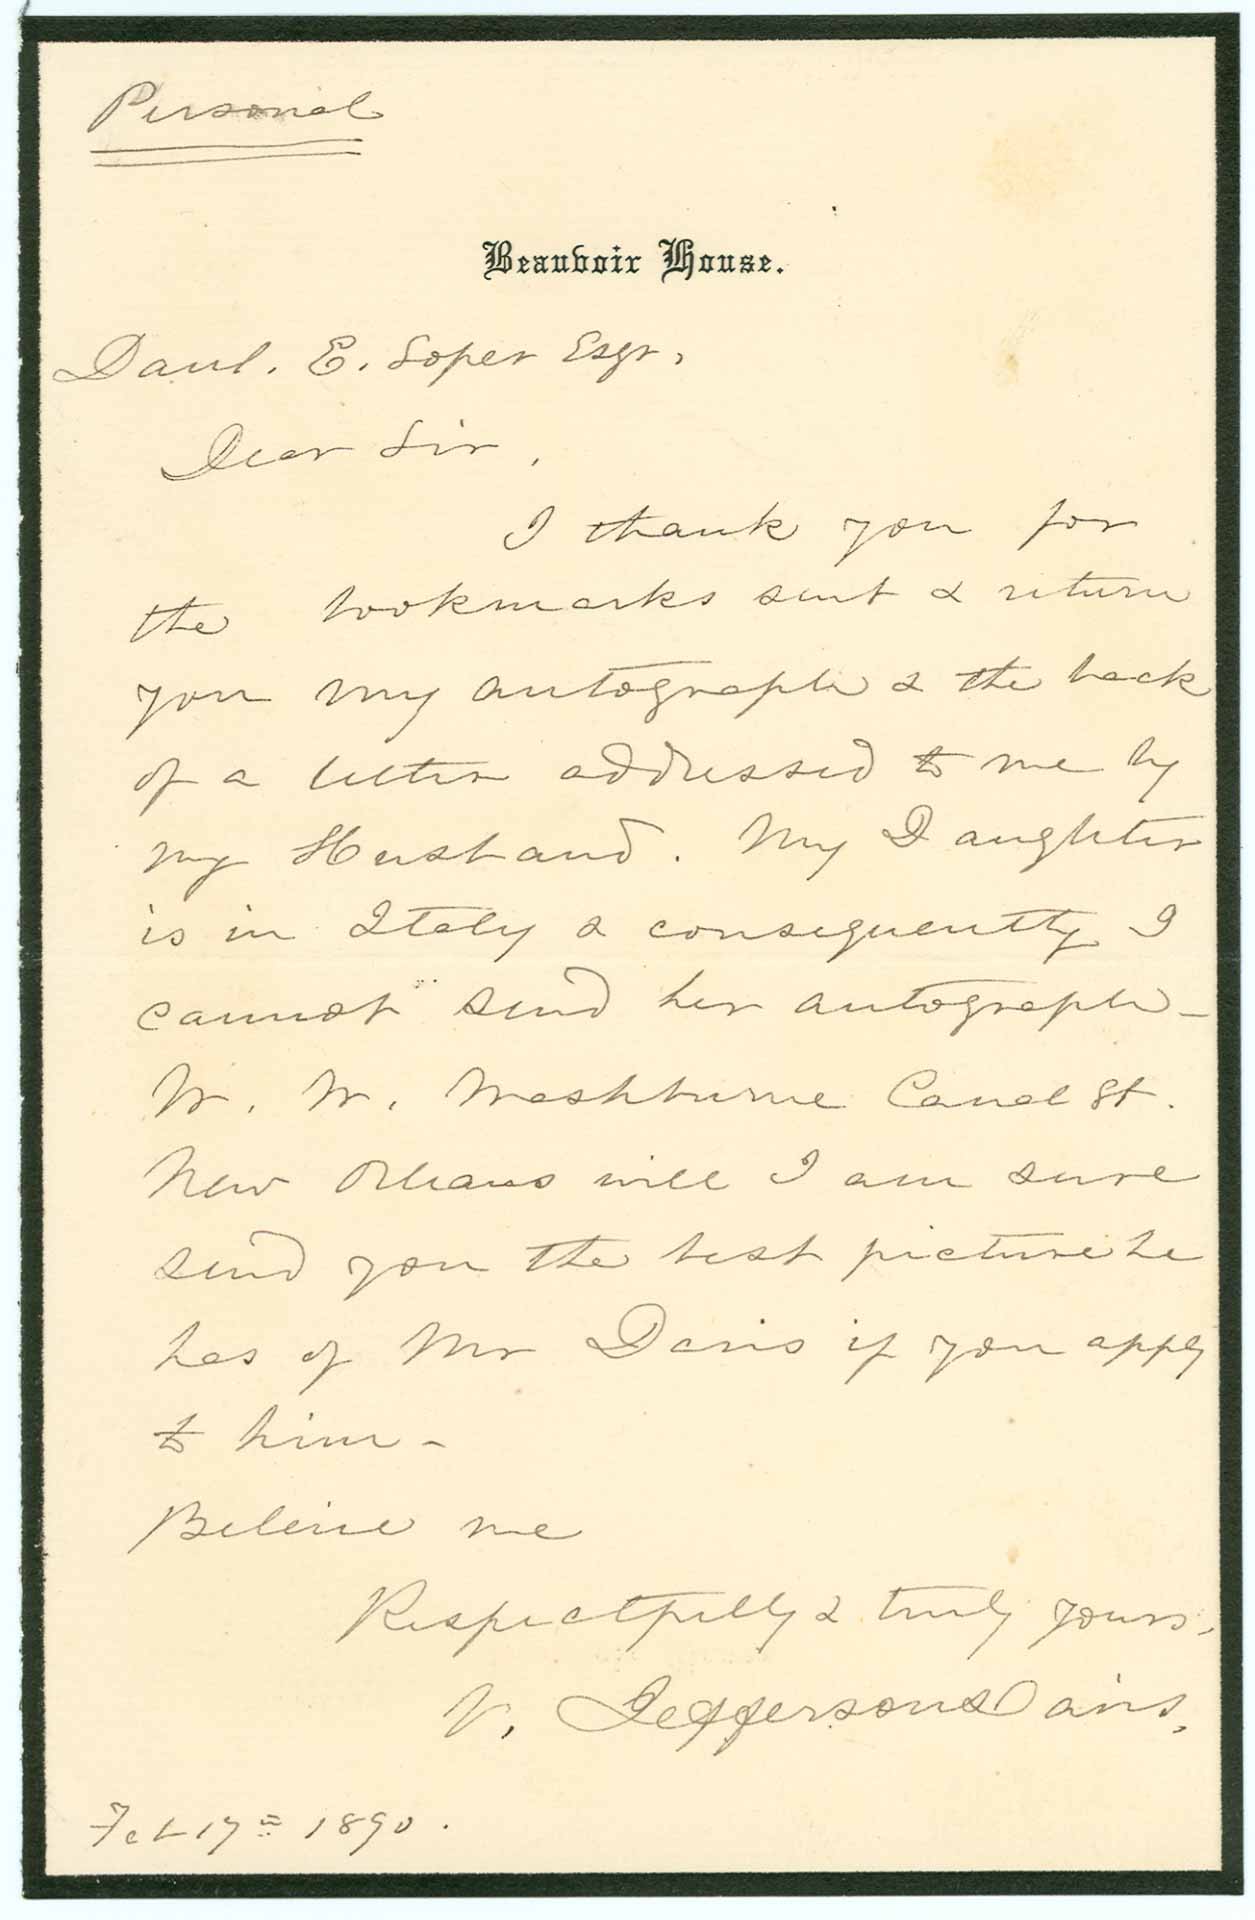 Personal
Beauvoir House.
Danl. E. Soper Esqr,
Dear Sir,
I thank you for
the bookmarks sent & return
you my autograph & the back
of a letter addressed to me by
my Husband. My Daughter
is in Italy & consequently I
cannot send her autograph -
W. W. Washburne Canal St.
New Orleans will I am sure
send you the best picture he
has of Mr Davis if you apply
to him -
Believe me
Respectfully & truly yours,
V. Jefferson Davis,
Feb 17th 1890.